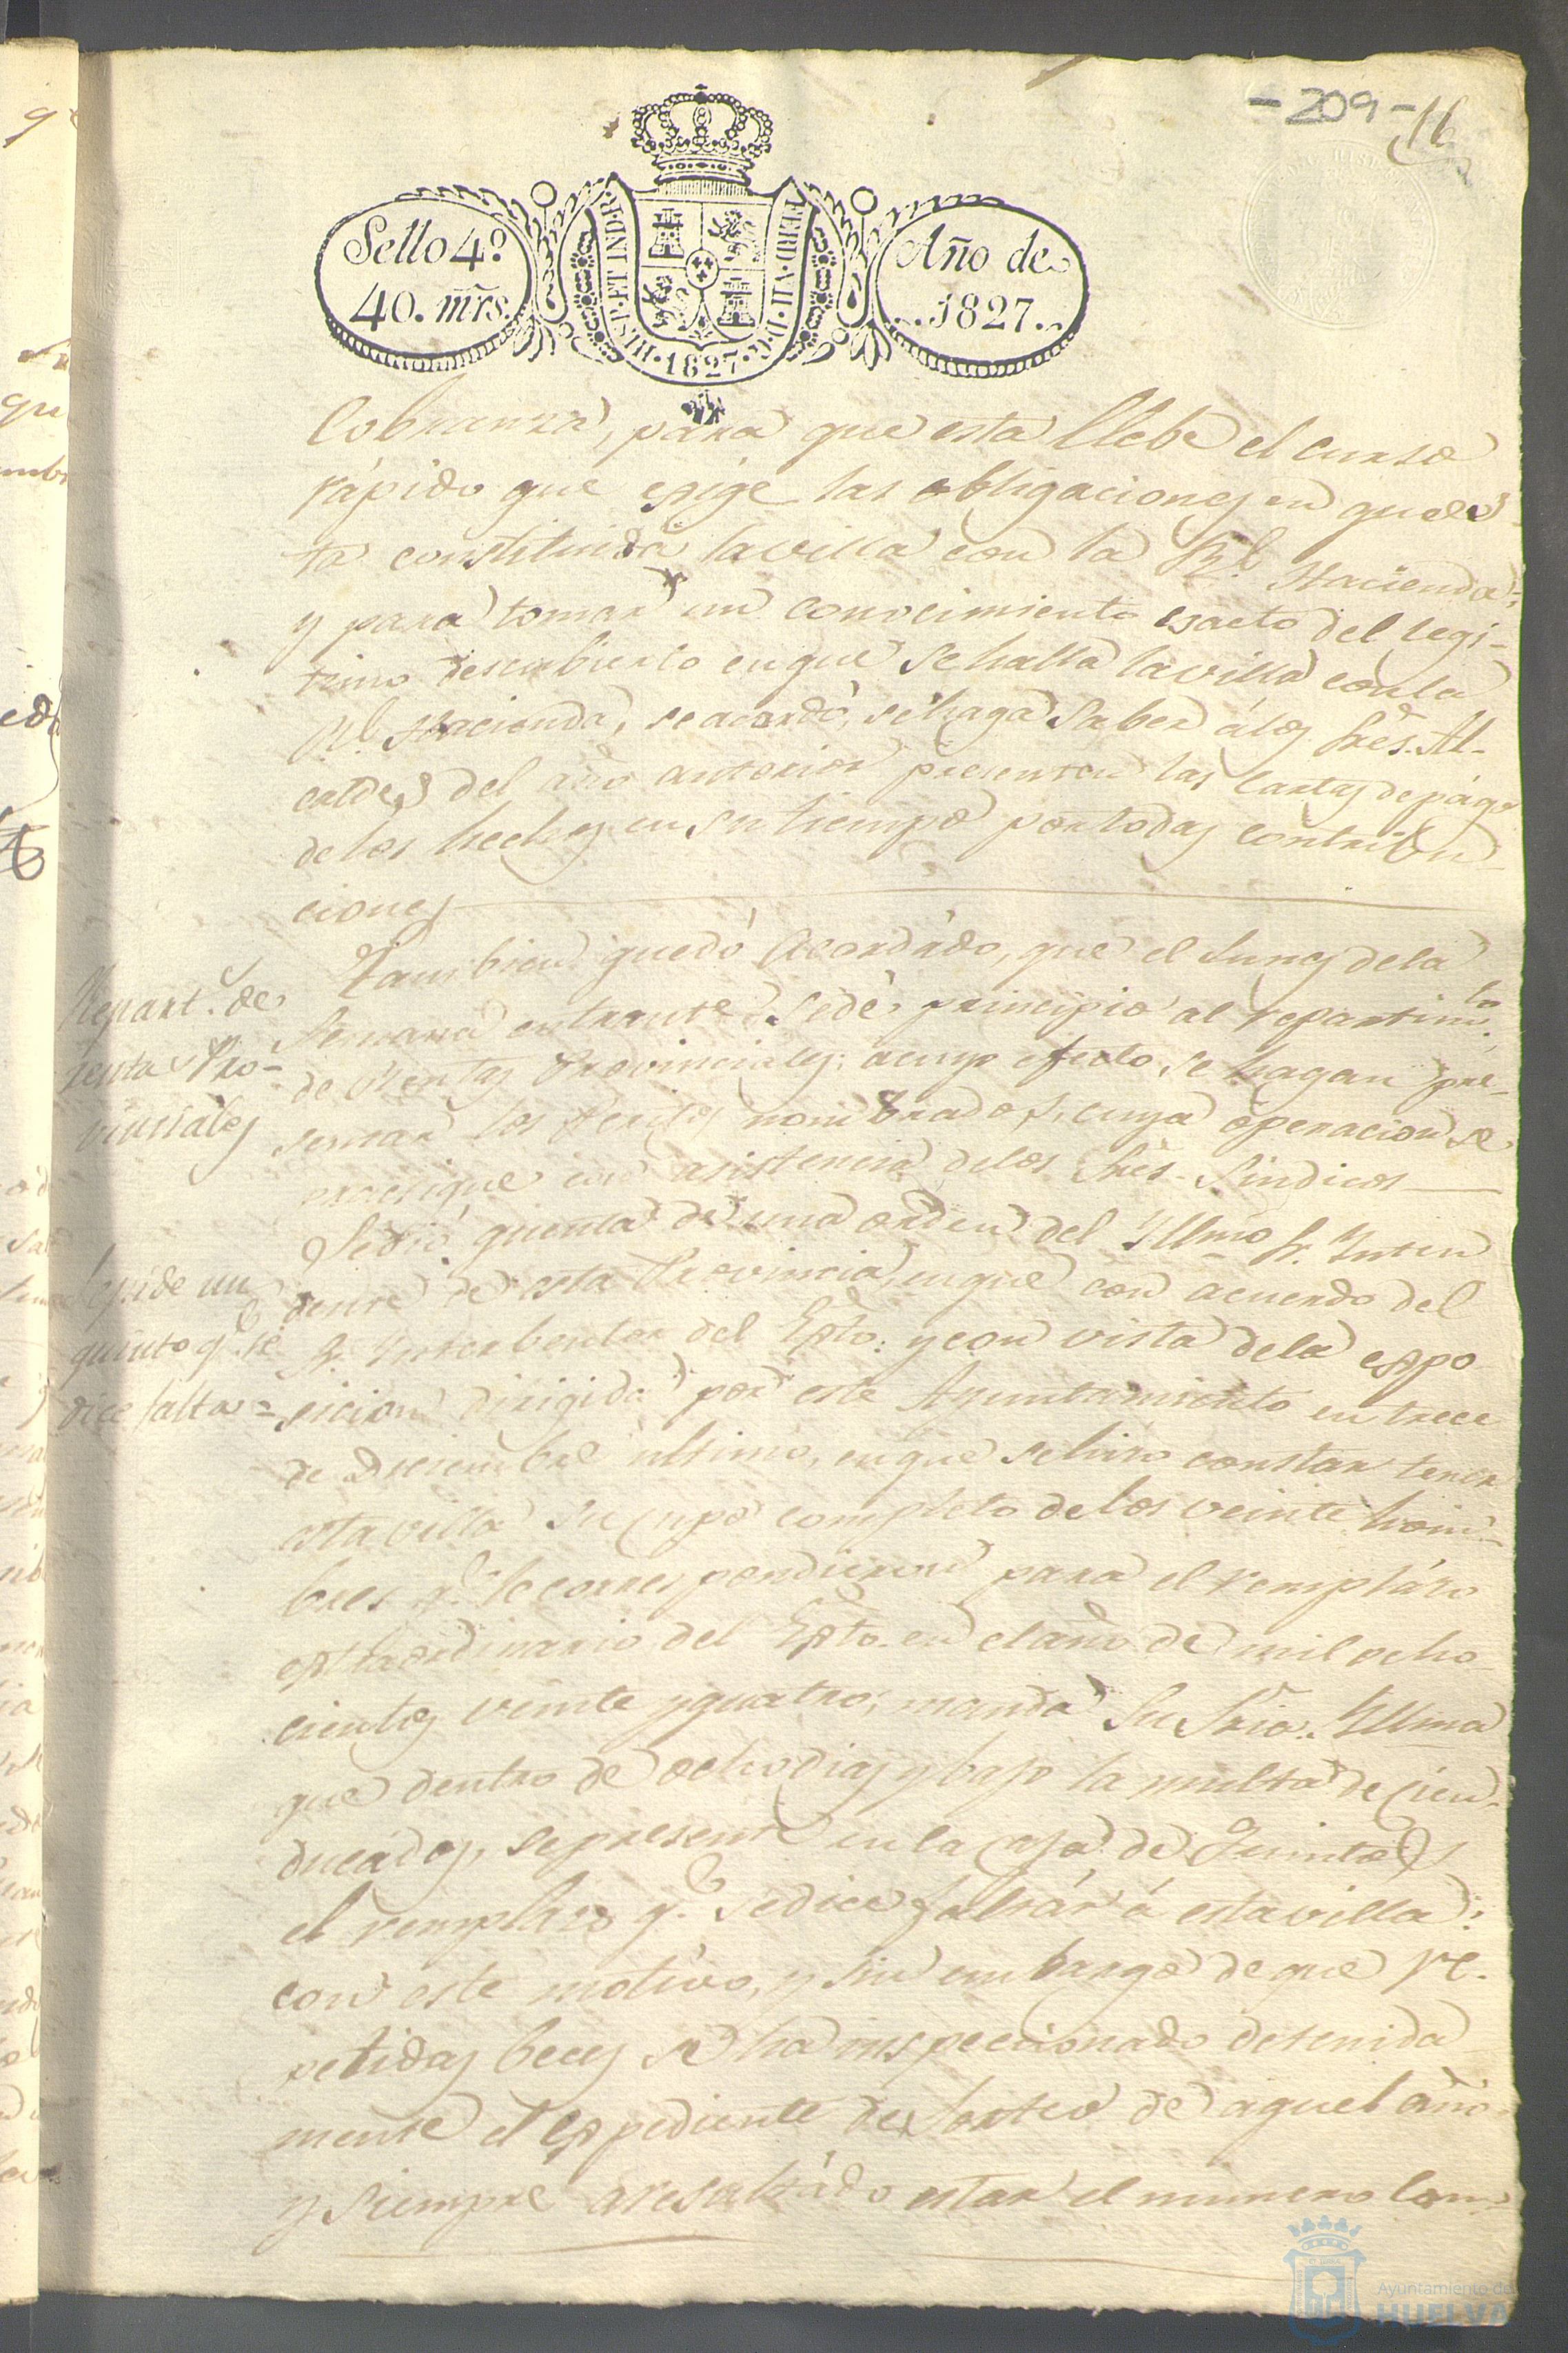 -209-
16
Sello 4º
40. mrs.
HISP. ET IND. R.
FERD. VII. D. G.
1827
Año de
1827.
Cobranza, para que esta llebe el curso
rápido que exige las obligaciones en que es-
ta constituida la villa con la Rl. Hacienda;
y para tomar un conocimiento esacto del legi-
timo descubierto en que se halla la villa con la
Rl. Hacienda, se acordó, se haga saber á los Sres. Al-
caldes del año anterior presenten las cartas de págo
de los hechos en su tiempo por todas contribu-
ciones
Repart.º de
renta Pro-
vinciales
Tambien quedó Acordádo, que el lunes de la
semana entrante se dé principio al repartimto.
de Rentas Provinciales; a cuyo efecto, se hagan pre-
sentar los Peritos nombrados, cuya operacion se
practique con asistencia de los Sres. Sindicos
Se pide un
quinto q.e se
dice falta =
Se dió quenta de una orden del Yllmo Sr. Inten
dente de esta Provincia, en que con acuerdo del
Sr. Interbentor del Exto. y con vista de la expo
sicion dirigida por este Ayuntamiento en trece
de Diciembre ultimo, en que se hizo constar tener
esta villa su cupo completo de los veinte hom-
bres q.e le correspondieron para el remplázo
extraordinario del Exto. en el año de mil ocho-
cientos veinte y quatro; manda Su Sria. Yllma
que dentro de ocho dias y bajo la multa de cien
ducádos, se presente en la caja de Quintos
el remplazo q.e se dice faltár á esta villa:
con este motivo, y sin embargo de que re-
petidas beces se ha inspeccionado detenida-
mente el expediente de sorteo de aquel año
y siempre a resultádo estar el numero com-
Ayuntamiento de
HUELVA